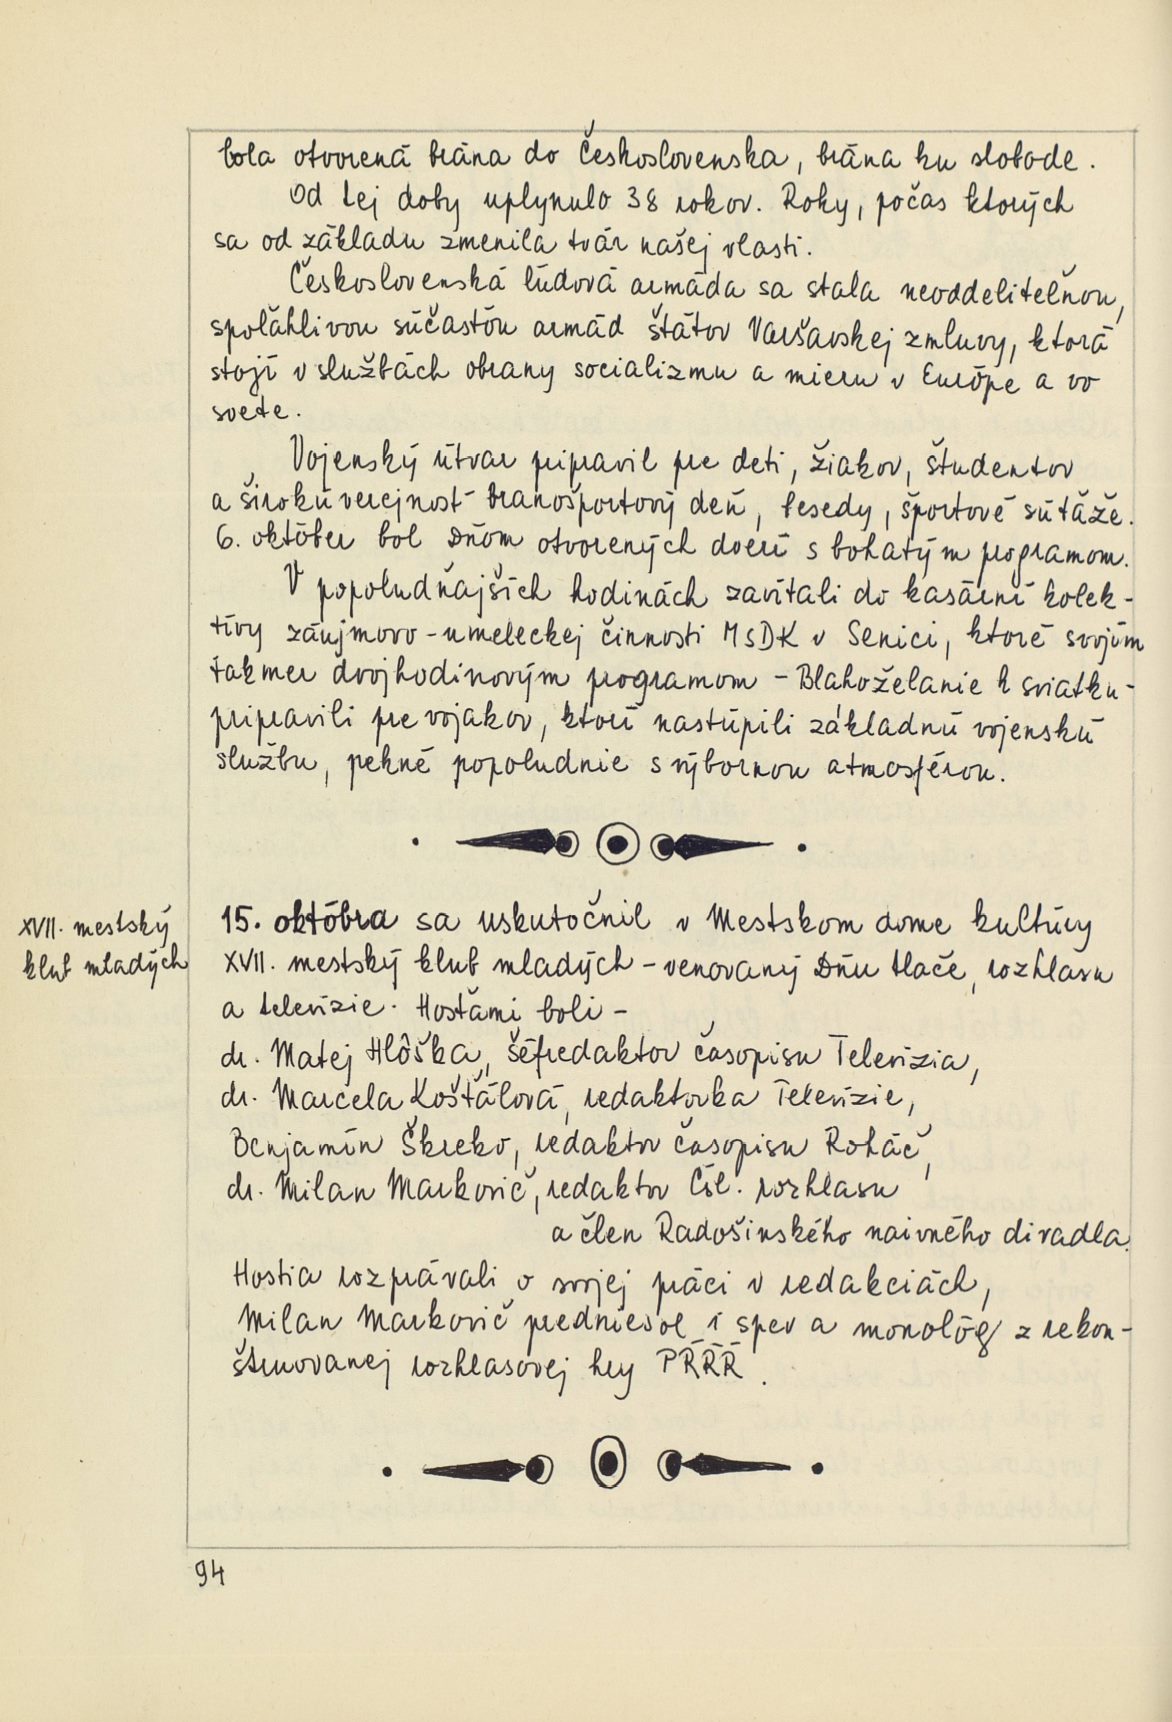 bola otvorená brána do Československa, brána ku slobode.
Od tej doby uplynulo 38 rokov. Roky, počas ktorých
sa od základu zmenila tvár našej vlasti.
Československá ľúdová armáda sa stala neoddeliteľnou,
spoľahlivou súčasťou armád štátov Varšavskej zmluvy, ktorá
stojí v službách obrany socializmu a mieru v Európe a vo
svete.
Vojenský útvar pripravil pre deti, žiakov, študentov
a širokú verejnosť branošportový deň, besedy, športové súťaže.
6. október bol Dňom otvorených dverí s bohatým programom.
V popoludňajších hodinách zavítali do kasární kolek-
tívy záujmovo-umeleckej činnosti MsDK v Senici, ktoré svojím
takmer dvojhodinovým programom - Blahoželanie k sviatku -
pripravili pre vojakov, ktorí nastúpili základnú vojenskú
službu, pekné popoludnie s výbornou atmosférou.
XVII. mestský
klub mladých
15. októbra sa uskutočnil v Mestskom dome kultúry
XVII. mestský klub mladých - venovaný Dňu tlače, rozhlasu
a televízie. Hosťami boli -
dr. Matej Hlôška, šéfredaktor časopisu Televízia,
dr. Marcela Košťálová, redaktorka Televízie,
Benjamín Škreko, redaktor časopisu Roháč,
dr. Milan Markovič, redaktor Čsl. rozhlasu
a člen Radošinského naivného divadla.
Hostia rozprávali o svojej práci v redakciách,
Milan Markovič predniesol i spev a monológ z rekon-
štruovanej rozhlasovej hry PŔŔŔ.
94